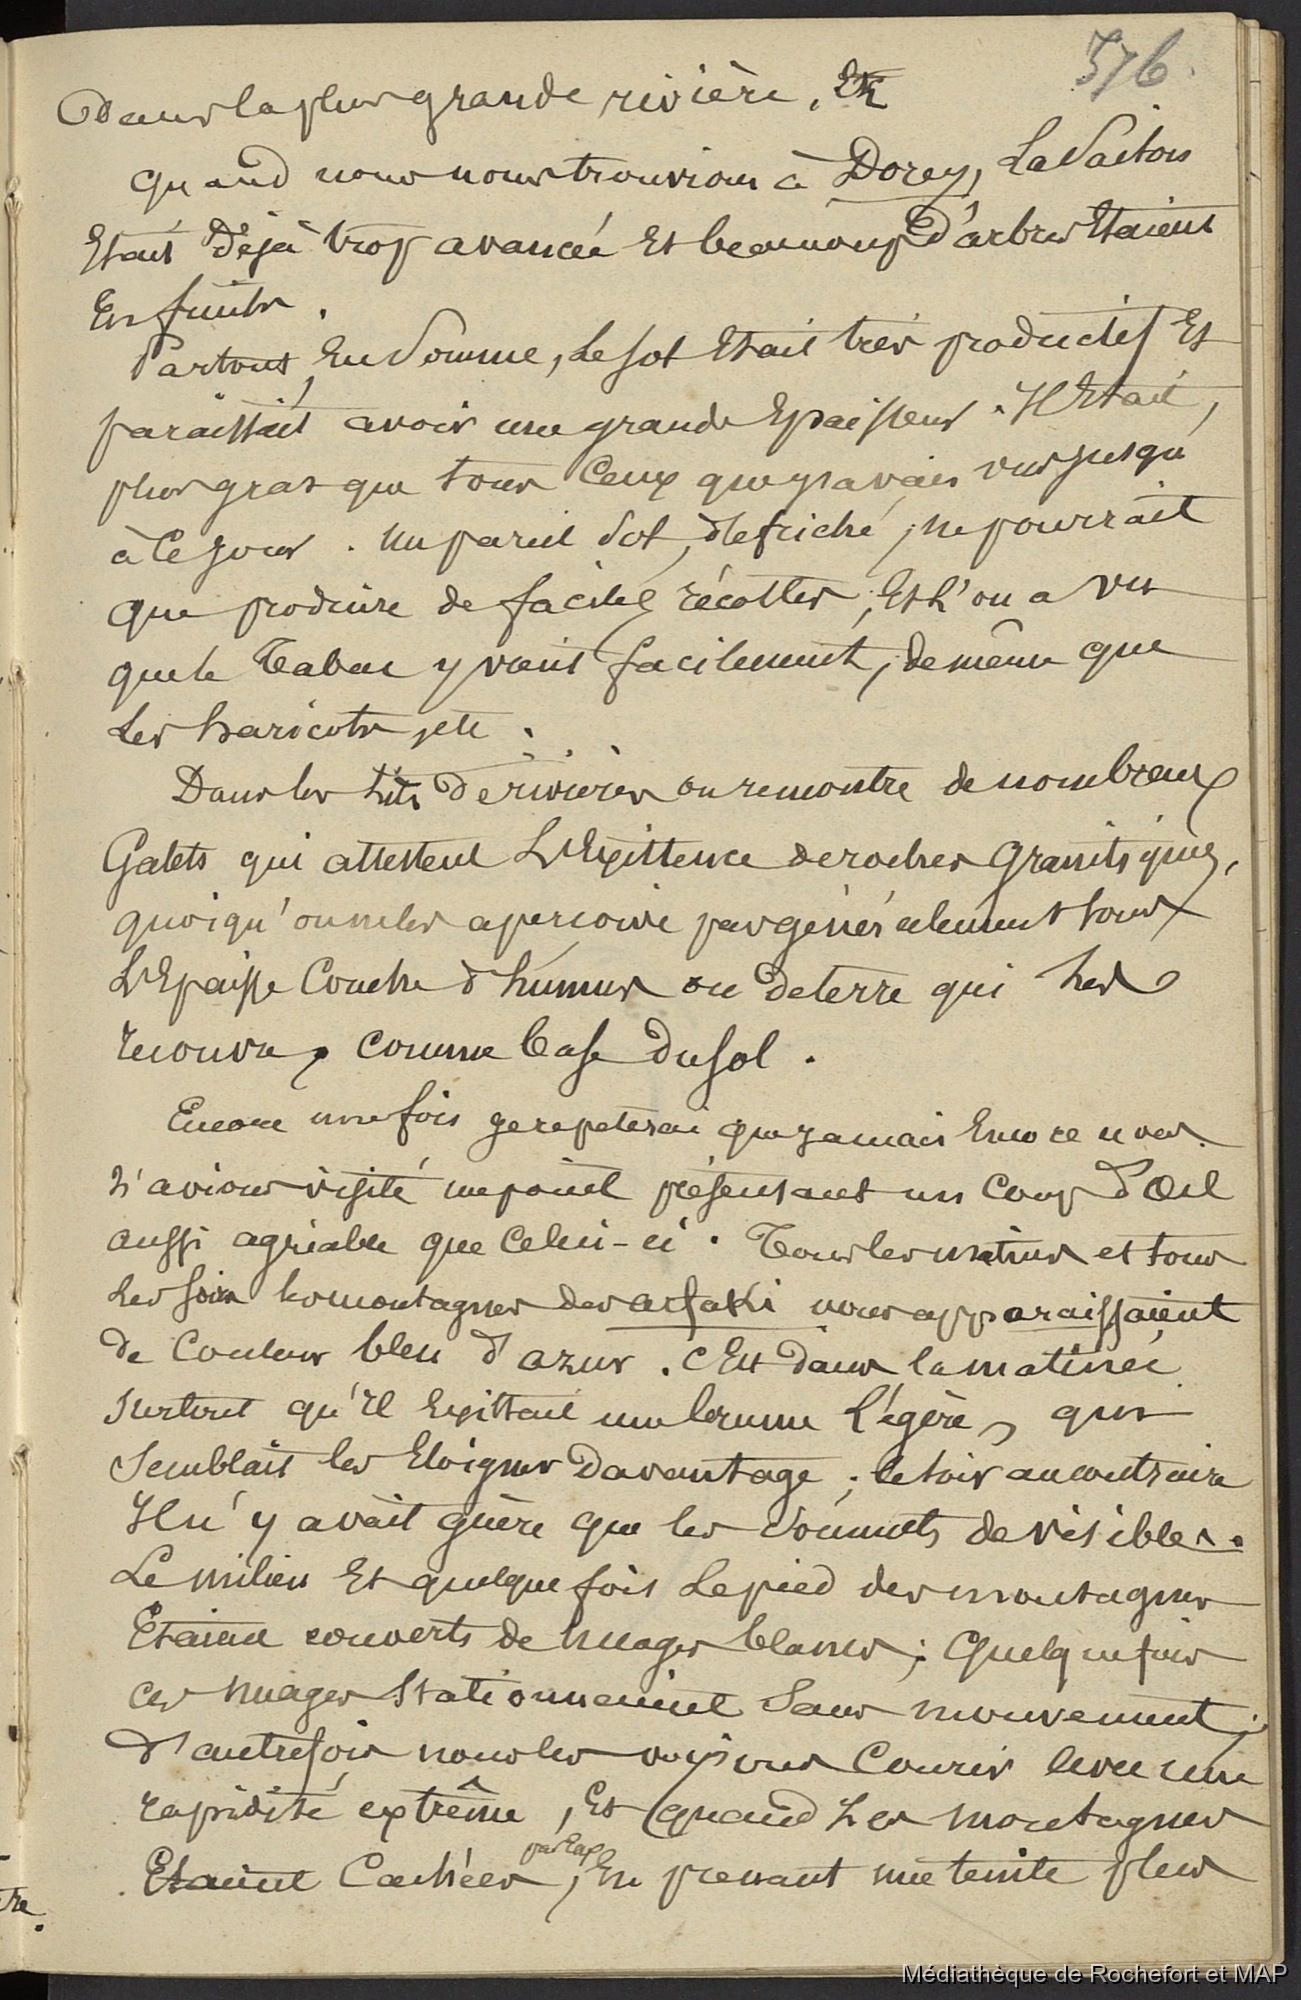 576.
Dans la plus grande rivière. Et
quand nous nous trouvions à Dorey, La Saison
Etait Déjà trop avancée Et beaucoup D'arbres Etaient
En fruits.
Partout, En Somme, Le Sol Etait très productif Et
paraissait avoir une grande Epaisseur. Il Etait,
plus gras que tous Ceux que j'avais vus jusqu'
à Ce jour. Un pareil Sol, défriché, ne pourrait
que produire de faciles récoltes, Et L'on a vu
que le Tabac y vient facilement, de même que
Les haricots, etc.
Dans les Lits De rivières on rencontre de nombreux
Galets qui attestent L'Existence de roches Granitiques,
quoiqu'on ne les aperçoive pas généralement sous
L'Epaisse Couche d'humus ou De terre qui Les
recouvre, comme base Du Sol.
Encore une fois je repeterai que jamais Encore nous
n'avions visité un point présentant un Coup D'Œil
aussi agréable que Celui-ci. Tous les matins et tous
Les soirs les montagnes des arfaki nous apparaissaient
de Couleur bleu d'azur. C'Est Dans la matinée
surtout qu'il Existait une brume Légère, qui
Semblait les Eloigner Davantage; le Soir au contraire
Il n'y avait guère que les Sommets de visibles.
Le milieu Et quelque fois Le pied des montagnes
Etaient couverts de nuages blancs; Quelque fois
ces nuages Stationnaient Sans mouvement;
d'autrefois nous les voyions Courir avec une
rapidité extrême, Et quand Les montagnes
Etaient Cachées par Eux, En prenant une teinte plus
tre.
Médiathèque de Rochefort et MAP